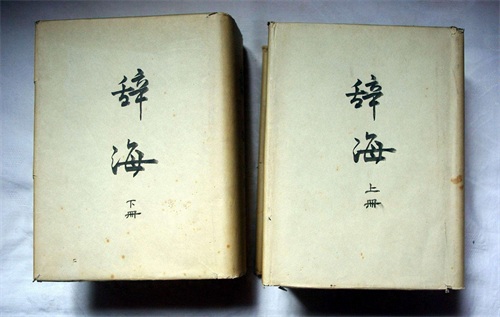 辞
海
下册
辞
海
上册